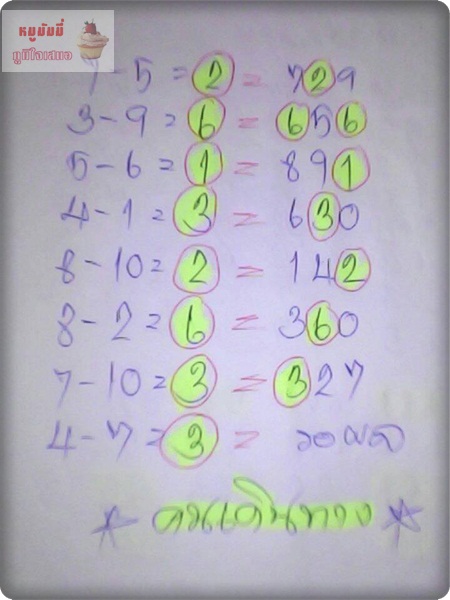 หมูมัมมี่
ภูมิใจเสนอ
7-5=2=729
3-9=6=656
5-6=1=891
4-1=3=630
8-10=2=142
8-2=6=360
7-10=3=327
4-7=3=รอผล
คนเดินทาง